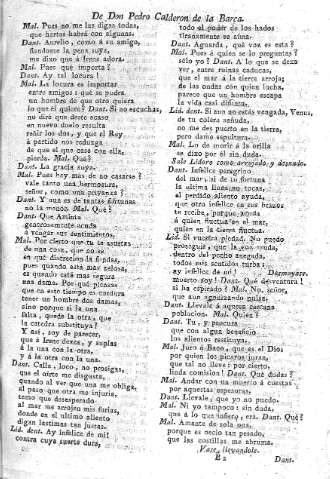 De Don Pedro Calderon de la Barca.
Mal. Pues no me las digas todas,
que hartos habrá con algunas.
Dant. Aurelio, como á su amigo,
me dixo que á Irene adora.
Mal. Pues qué importa?
Dant. Ay tal locura!
Mal. La locura es importar
entre amigos: qué se pudra
un hombre de que otro quiera
lo que él quiere? Dant. Si no escuchas,
no diré que deste acaso
en nuevo duelo resulta
reñir los dos, y que el Rey
á partido nos reduzga
de que el que case con ella,
pierda. Mal. Qué?
Dant. La gracia suya.
Mal. Pues hay mas de no casarse?
vale tanto una hermosura,
señor, como una privanza?
Dant. Y aun es de tantas fortunas
no la menor. Mal. Qué?
Dant. Que Aminta
generosamente
á vengar sus sentimientos.
Mal. Por cierto que tú te asustas
de una cosa, que no sé
en qué discrecion la fundas,
pues quando está mas zelosa,
es quando está mas segura
una dama. Por qué piensas
que en este tiempo es cordura
tener un hombre dos damas,
sino porque si la una
falta, quede la otra, que
la catedra substituya?
Y así, soy de parecer,
que á Irene dexes, y suplas
á la una con la otra,
y á la otra con la una.
Dant. Calla, loco, no prosigas,
que el oirte me disgusta,
quando al ver que una me obliga,
al paso que otra me injuria,
temo que desesperado
al mar me arrojen mis furias,
donde en el último aliento
digan lastimas tan justas.
Lid. dent. Ay infelice de mí!
contra cuya suerte dura,
todo el poder de los hados
tiranamente se aúna.
Dant. Aguarda, qué voz es esta?
Mal. Pues á quien se lo preguntas?
sélo yo? Dant. A lo que se dexa
ver, entre ruinas caducas,
que el mar á la tierra arroja;
de las ondas con quien lucha,
parece que un hombre escapa
la vida casi difunta.
Lid. dent. Si aun no estás vengada, Venus,
de tu colera sañuda,
no me des puerto en la tierra,
pero dame sepultura.
Mal. Lo de morir á la orilla
se dixo por él sin duda.
Sale Lidoro como arrojado, y desnudo.
Dant. Infelice peregrino
del mar, si de tu fortuna
la ultima linea es tocas,
el perdido aliento ayuda,
que otro infelice en sus brazos
te recibe, porque
á quien fluctúa en el mar,
quien en la tierra fluctúa.
Lid. Si vuestra piedad. No puedo
proseguir, que la voz muda,
dentro del pecho anegada,
todos mis sentidos turba:
ay infelice de mí! Desmayase.
muerto soy! Dant. Qué desventura!
si ha espirado? Mal. No, señor,
que aun agonizando pulsa.
Dant. Llevale á aquesa cercana
poblacion. Mal. Quien?
Dant. Tu, y procura
que con algun beneficio
los alientos restituya.
Mal. Juro á Baco, que es el Dios,
por quien los picaros juran,
que tal no lleve: por cierto,
linda comision! Dant. Qué dudas?
Mal. Andar con un muerto á cuestas
por aquestas espesuras.
Dant. Llevale, que yo no puedo.
Mal. Ni yo tampoco: sin duda,
que á lo que infiero, era. Dant. Qué?
Mal. Amante de sola una,
porque es necio tan pesado,
que las costillas me abruma.
Vase, llevandole.
Dant.